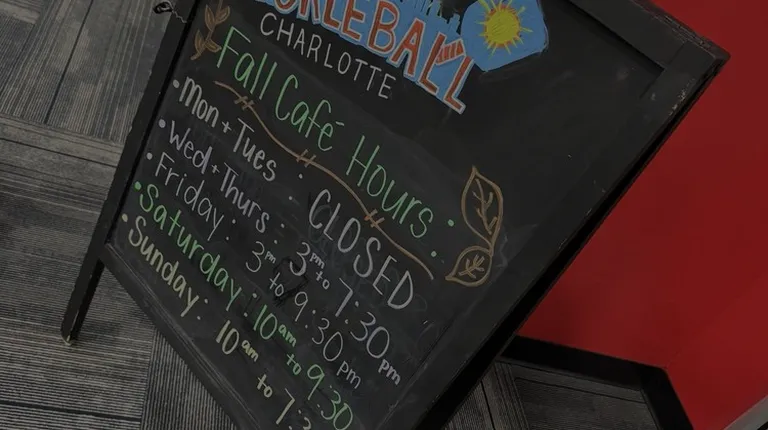 CHARLOTTE
Fall Café Hours:
• Mon + Tues : CLOSED
• Wed + Thurs : 3pm to 7:30pm
• Friday : 3pm to 9:30pm
• Saturday : 10am to 9:30
• Sunday : 10am to